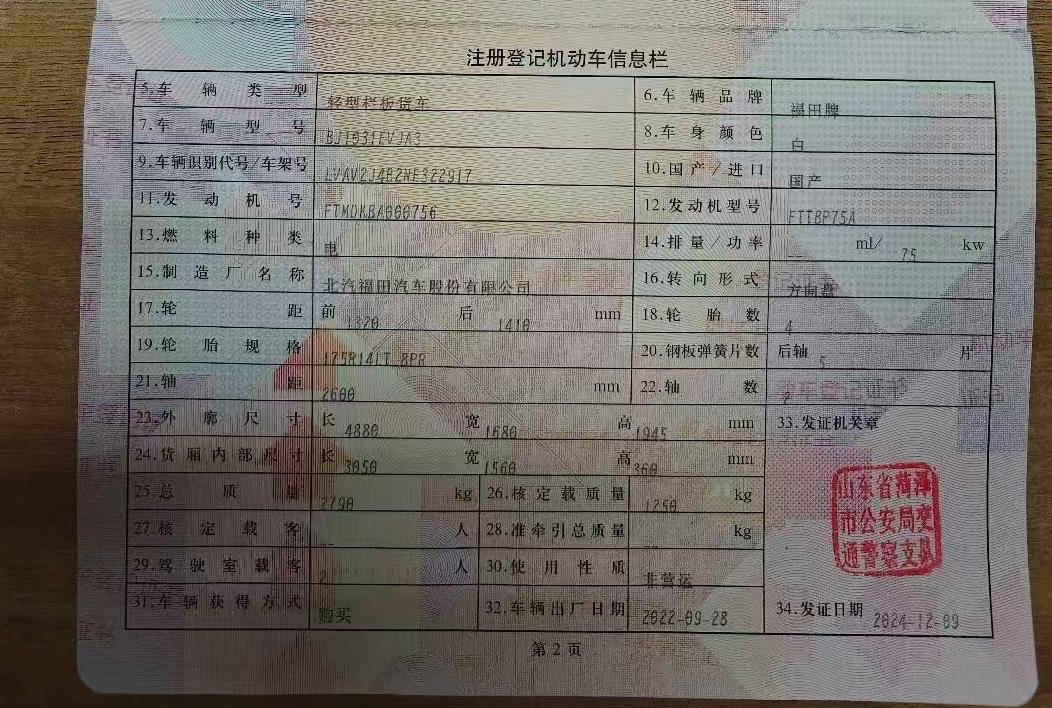 注册登记机动车信息栏
5.车辆类型 轻型栏板货车 6.车辆品牌 福田牌
7.车辆型号 BJ1031EVJA3 8.车身颜色 白
9.车辆识别代号/车架号 LVAV2J4B2NE322917 10.国产/进口 国产
11.发动机号 FTMDKBA000756 12.发动机型号 FTTBP75A
13.燃料种类 电 14.排量/功率 -- ml/ 75 kw
15.制造厂名称 北汽福田汽车股份有限公司 16.转向形式 方向盘
17.轮距 前 1320 后 1410 mm 18.轮胎数 4
19.轮胎规格 175R14LT 8PR 20.钢板弹簧片数 后轴 5 片
21.轴距 2600 mm 22.轴数 2
23.外廓尺寸 长 4880 宽 1680 高 1945 mm 33.发证机关章
24.货厢内部尺寸 长 3050 宽 1560 高 360 mm
25.总质量 2790 kg 26.核定载质量 1250 kg
27.核定载客 -- 人 28.准牵引总质量 -- kg
29.驾驶室载客 2 人 30.使用性质 非营运
31.车辆获得方式 购买 32.车辆出厂日期 2022-09-28 34.发证日期 2024-12-09
山东省菏泽
市公安局交
通警察支队
第2页